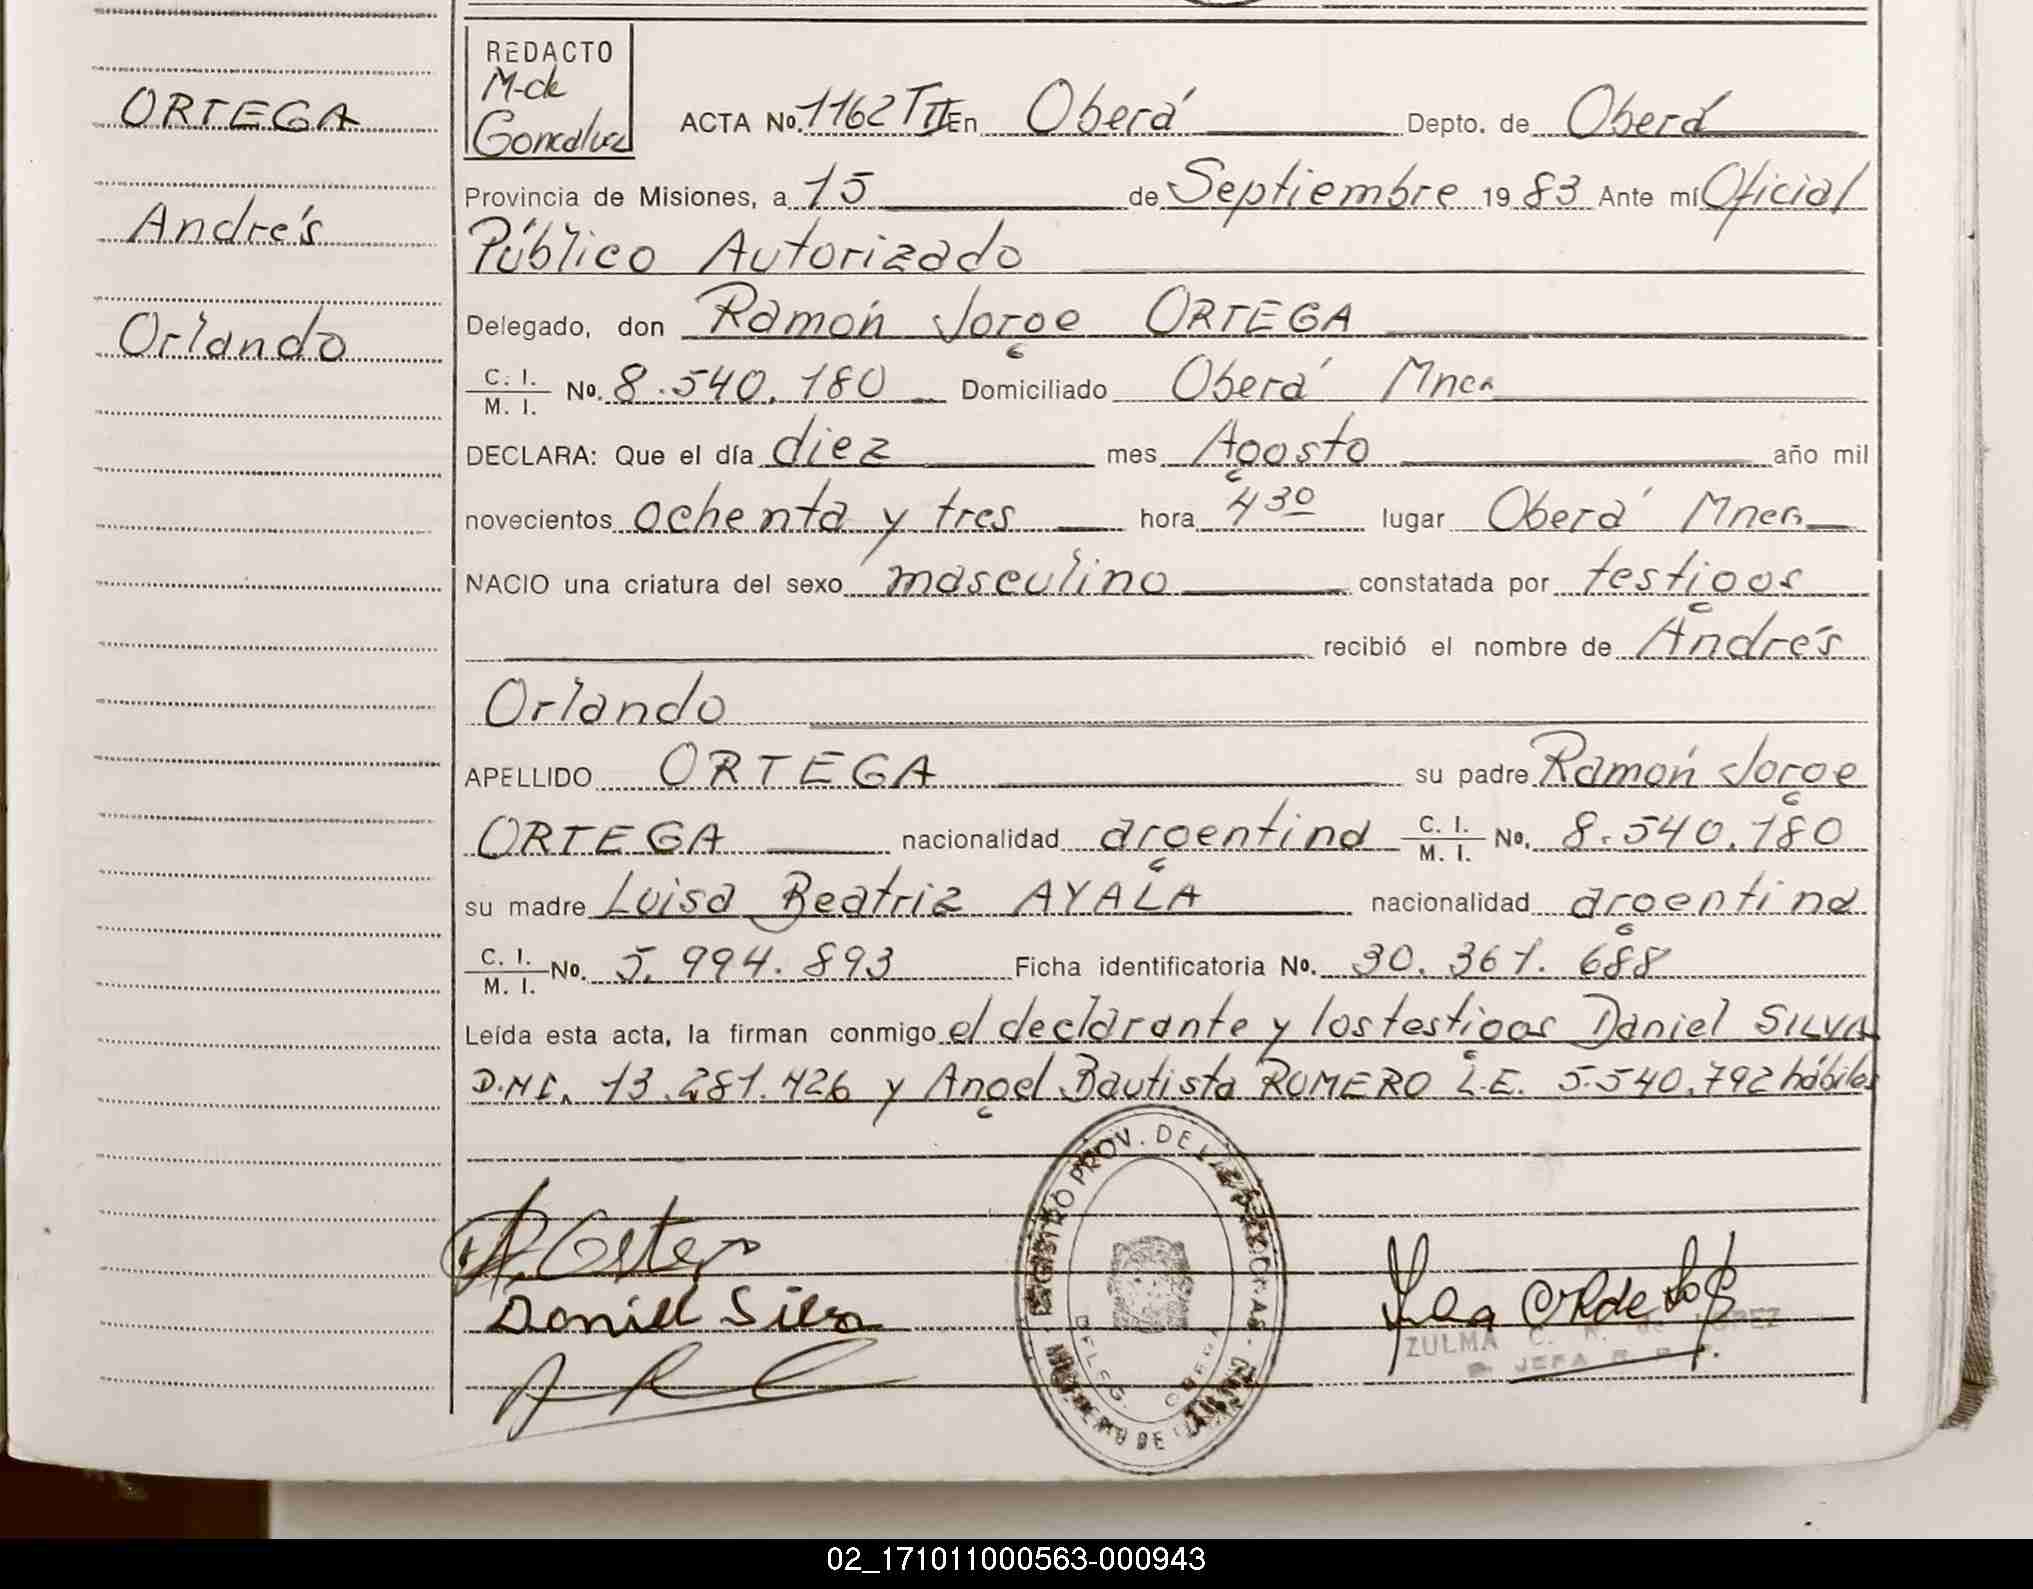 ORTEGA
Andrés
Orlando
REDACTO
M. de
ACTA No. 1162 TII En Oberá Depto. de Oberá
Provincia de Misiones, a 15 de Septiembre 1983 Ante mí Oficial
Público Autorizado
Delegado, don Ramón Jorge ORTEGA
C. I. M. I. No. 8.540.180 Domiciliado Oberá Mnes
DECLARA: Que el día diez mes Agosto año mil
novecientos ochenta y tres hora 4 30 lugar Oberá Mnes
NACIO una criatura del sexo masculino constatada por testigos
recibió el nombre de Andrés
Orlando
APELLIDO ORTEGA su padre Ramón Jorge
ORTEGA nacionalidad argentina C. I. M. I. No. 8.540.180
su madre Luisa Beatriz AYALA nacionalidad argentina
C. I. M. I. No. 5.994.893 Ficha identificatoria No. 30.367.688
Leída esta acta, la firman conmigo el declarante y los testigos Daniel SILVA
D.N.I. 13.281.426 y Angel Bautista ROMERO L.E. 5.540.792 hábiles
R. Ortega
Daniel Silva
REGISTRO PROV. DE LAS PERSONAS
DELEG. OBERA
ZULMA C. R. de LOPEZ
JEFA
02_171011000563-000943